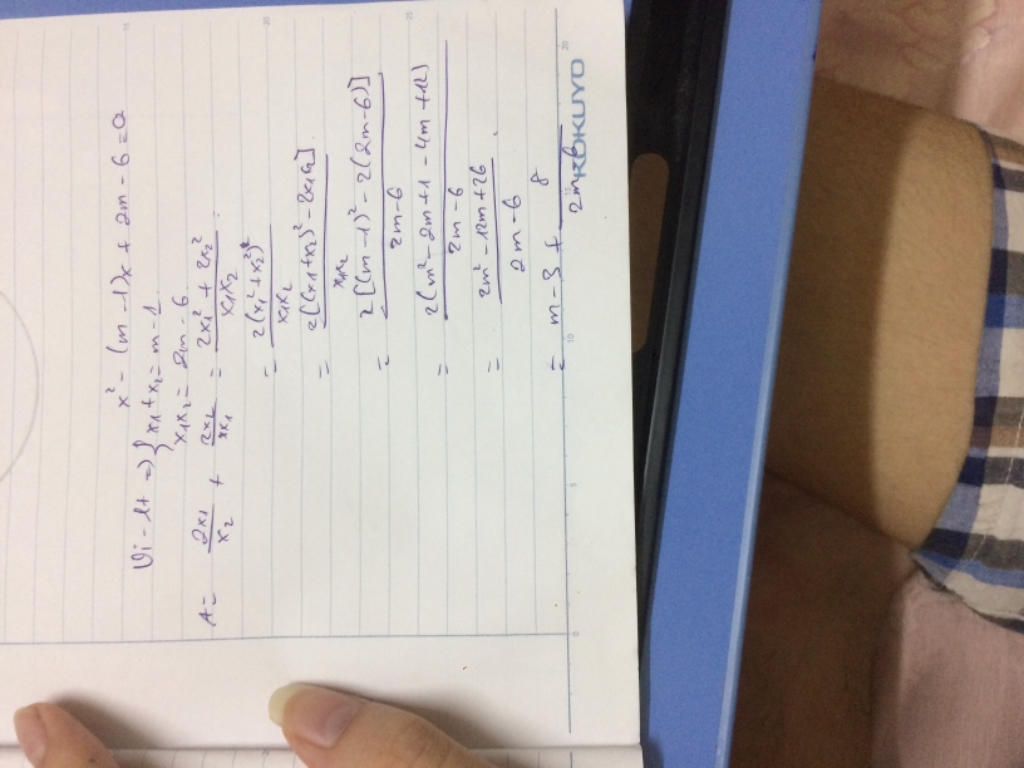 x² - (m-1)x + 2m - 6 = 0
Vi-ét => { x1 + x2 = m - 1
x1x2 = 2m - 6
A = 2x1/x2 + 2x2/x1 = (2x1² + 2x2²)/(x1x2)
= 2(x1² + x2²)/(x1x2)
= 2[(x1+x2)² - 2x1x2]/(x1x2)
= 2[(m-1)² - 2(2m-6)]/(2m-6)
= 2(m² - 2m + 1 - 4m + 12)/(2m-6)
= (2m² - 12m + 26)/(2m-6)
= m - 3 + 8/(2m-6)
KOKUYO
0 5 10 15 20
15 20 25